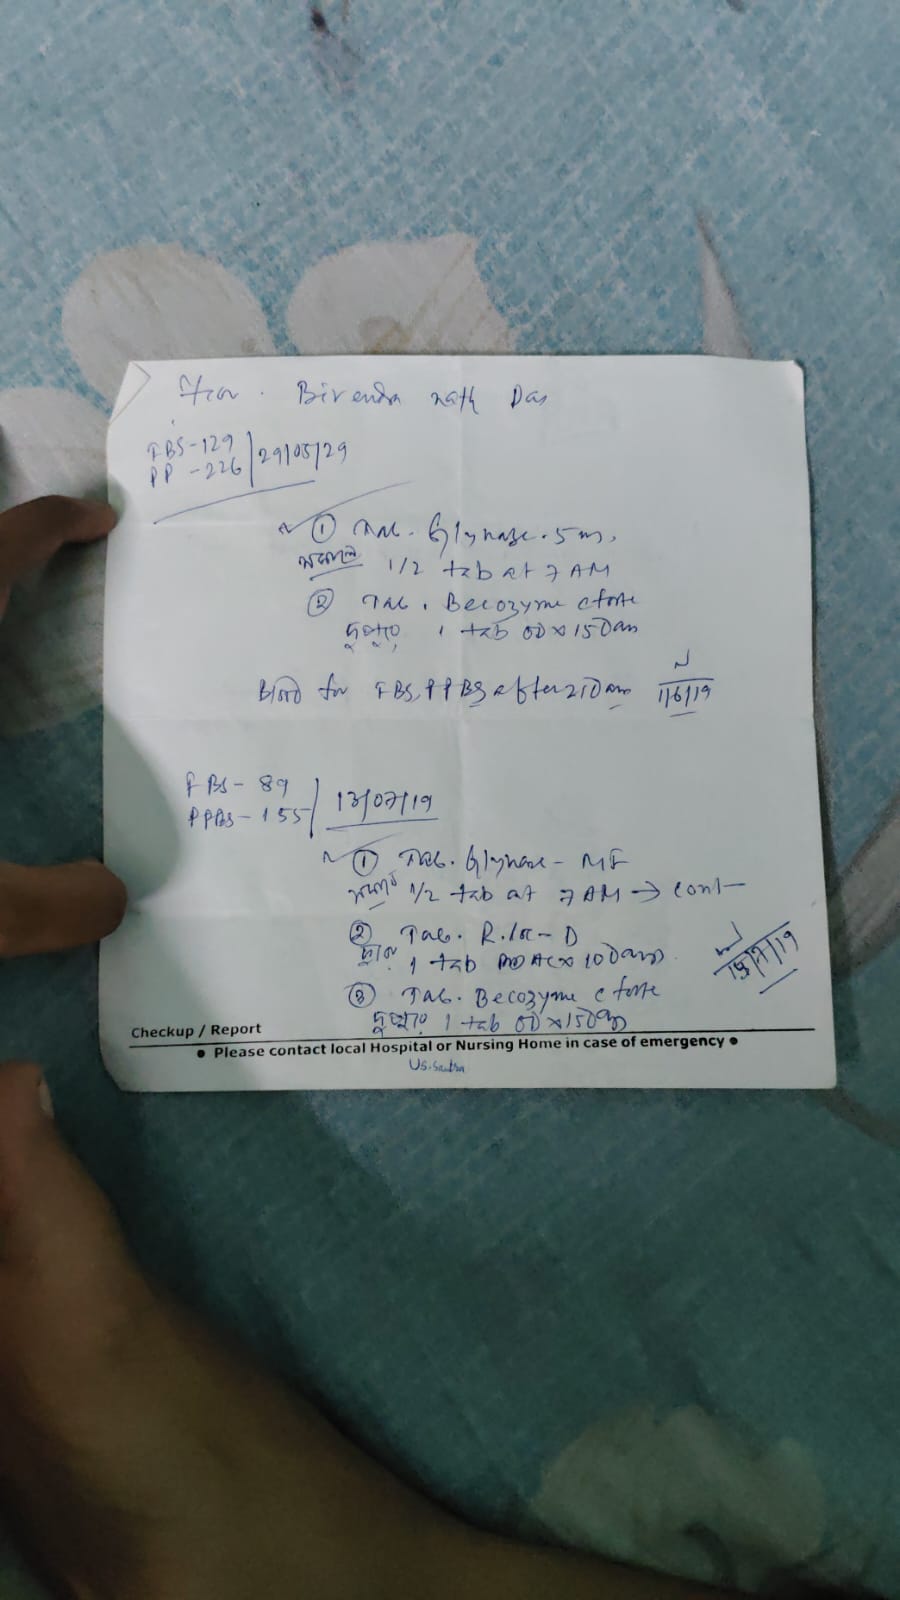 Birendra nath Das
FBS-129
PP -226 29/05/29
① Tab. Glynase. 5 m.
1/2 tab at 7 AM
② Tab. Becozyme c forte
দুপুরে 1 tab OD x 15 Days
Blood for FBS, PPBS after 21 Days 1/6/19
FBS- 89
PPBS- 155 13/07/19
① Tab. Glynase - MF
1/2 tab at 7 AM → cont-
② Tab. R.loc- D
1 tab AC x 10 Days
15/7/19
③ Tab. Becozyme c forte
1 tab OD x 15 Days
Checkup / Report
● Please contact local Hospital or Nursing Home in case of emergency ●